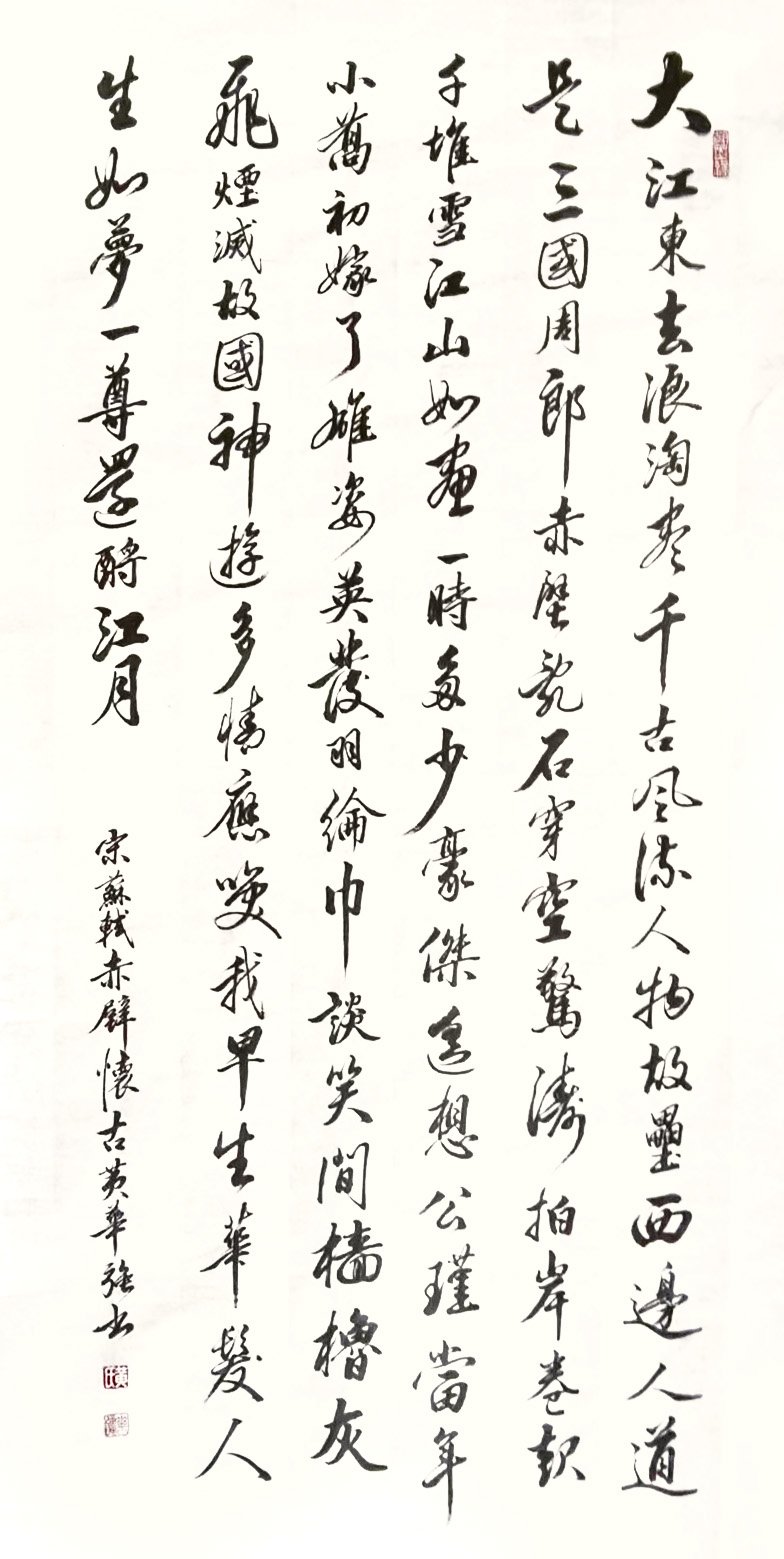 大江東去浪淘盡千古風流人物故壘西邊人道
是三國周郎赤壁亂石穿空驚濤拍岸卷起
千堆雪江山如畫一時多少豪傑遙想公瑾當年
小喬初嫁了雄姿英發羽綸巾談笑間檣櫓灰
飛煙滅故國神遊多情應笑我早生華髮人
生如夢一尊還酹江月
宋蘇軾赤壁懷古黃華強書